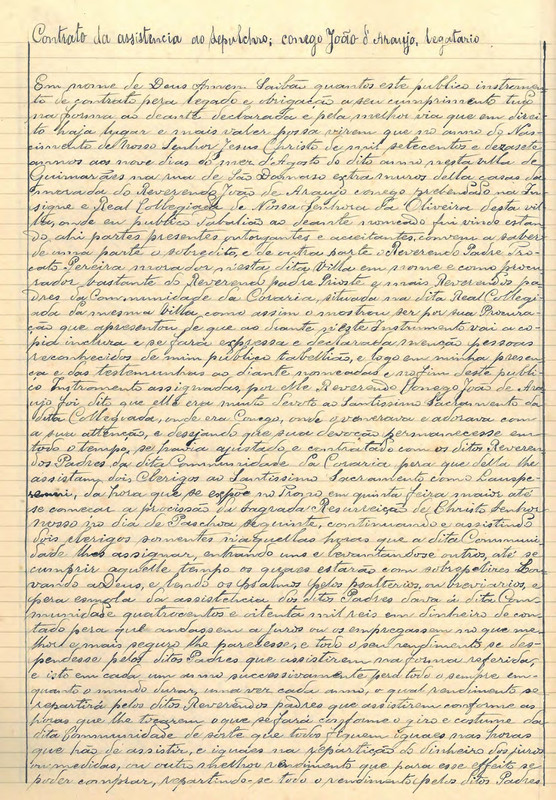 Contrato da assistencia ao Sepulchro; conego João d'Araujo, legatario
Em nome de Deus Amnem Saibão quantos este publico instromen-
to de contrato pera legado e obrigação a seu cumprimento tuão
na forma ao deante declarada e pela melhor via que em direi-
to haja lugar e mais valer possa virem que no anno do Nas-
cimento de Nosso Senhor Jesus Christo de mil setecentos e dezasete
annos aos nove dias do mez d'Agosto do dito anno nesta villa de
Guimarães na rua de São Damaso extramuros della casas da
morada do Reverendo João de Araujo conego prebendado na In-
signe e Real Collegiada de Nossa Senhora da Oliveira desta vil-
la, onde eu publico Tabalião ao deante nomeado fui vindo estan-
do ahi partes presentes outorgantes e aceitantes, convem a saber
de uma parte o sobredito, e de outra parte o Reverendo Padre
Pereira morador nesta dita Villa em nome e como procu-
rador bastante do Reverendo padre Prioste e mais Reverendos pa-
dres da Communidade da Coraria, situada na dita Real Collegi-
ada da mesma Villa, como assim o mostrou ser por sua Procura-
ção que apresentou de que ao diante neste Instrumento vai a co-
pia inclusa e se fará expressa e declarada menção pessoas
reconhecidas de mim publico tabellião, e logo em minha presen-
ça e das testemunhas ao diante nomeadas e no fim deste publi-
co Instrumento assignadas, por elle Reverendo Conego João de Ara-
ujo foi dito que elle era muito devoto do Santissimo Sacramento da
dita Collegiada, onde era Conego, onde o venerava e adorava com
a sua attenção, e desejando que sua devoção permanecesse em
todo o tempo, se havia ajustado e contratado com os ditos Reveren-
dos Padres da dita Communidade da Coraria pera que della lhe
assistam dois Clerigos ao Santissimo Sacramento com Lausperenni,
da hora que se expoe no Trono em quinta feira maior até
se começar a procissão da Sagrada Resurreição de Christo Senhor
nosso no dia de Paschoa seguinte, continuando e assistindo
dois clerigos somentes naquellas horas que a dita Communi-
dade lhes assignar, entrando uns e levantando-se outros, até se
cumprir aquelle tempo os quaes estarão com sobrepelizes Lou-
vando a Deus, e lendo os Psalmos pelos psalterios, ou breviarios, e
pera esmola da assistencia dos ditos Padres dava á dita Com-
munidade quatrocentos e oitenta mil reis em dinheiro de con-
tado pera que andassem a juros ou os empregassem no que me-
lhor e mais seguro lhe parecesse, e todo o seu rendimento se des-
pendesse pelos ditos Padres que assistirem na forma referida,
e isto em cada um anno successivamente pera todo o sempre em-
quanto o mundo durar, uma vez cada anno, o qual rendimento se
repartirá pelos ditos Reverendos padres que assistirem conforme as
horas que lhe tocarem o que se fará conforme o giro e costume da
dita Communidade de sorte que todos fiquem iguaes nas horas
que hão de assistir, e iguaes na repartição do dinheiro dos juros
ou medidas, ou outro melhor rendimento que para esse effeito se
poder comprar, repartindo-se todo o rendimento pelos ditos Padres